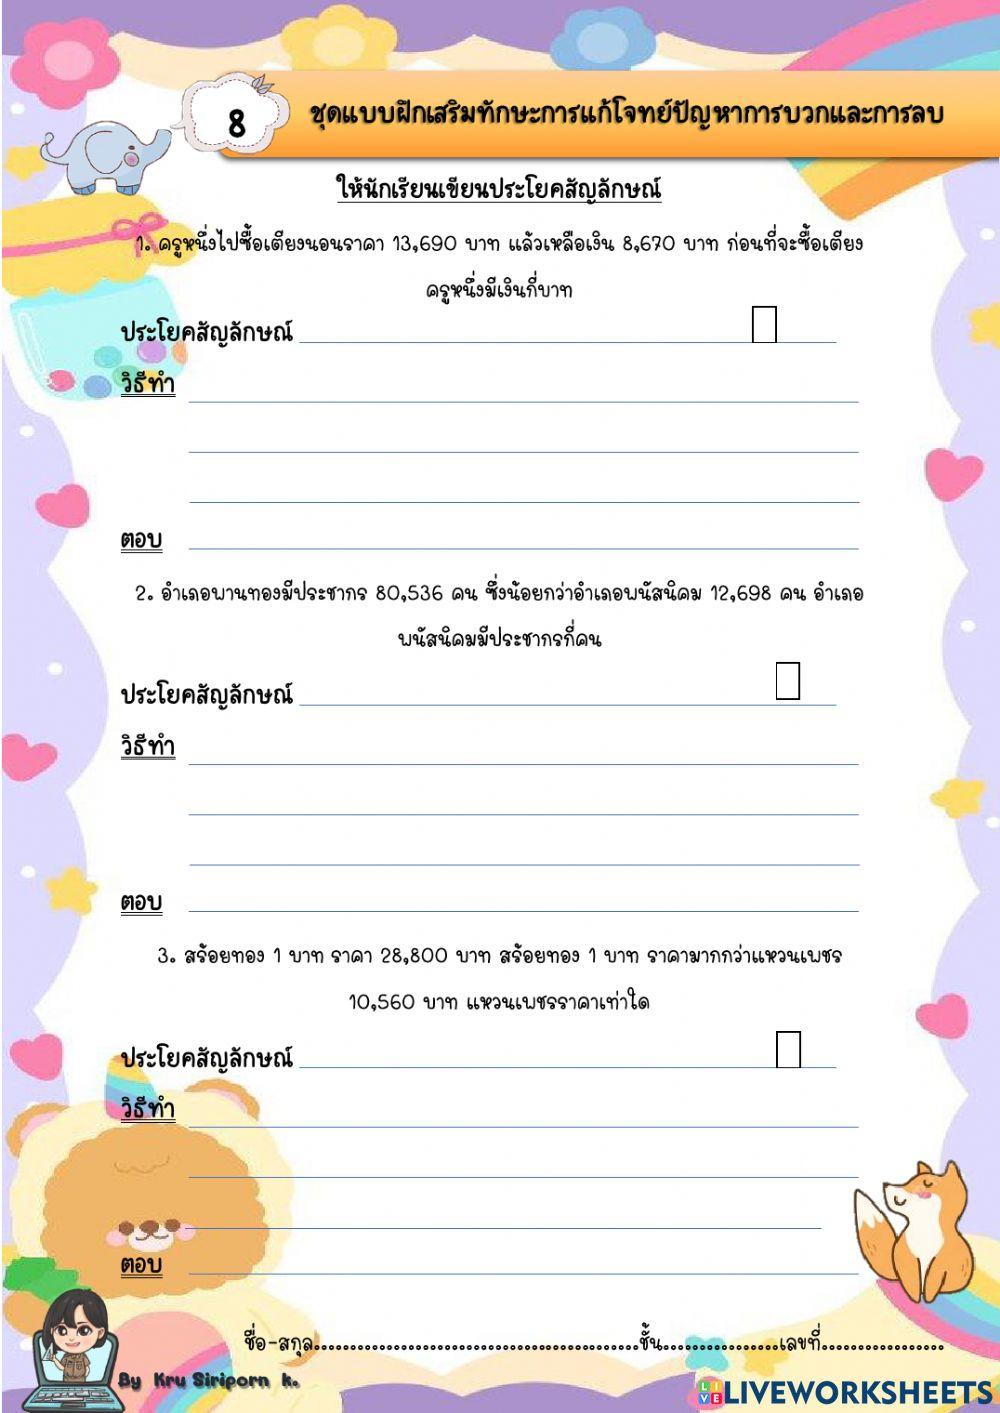 8
ชุดแบบฝึกเสริมทักษะการแก้โจทย์ปัญหาการบวกและการลบ
ให้นักเรียนเขียนประโยคสัญลักษณ์
1. ครูหนึ่งไปซื้อเตียงนอนราคา 13,690 บาท แล้วเหลือเงิน 8,670 บาท ก่อนที่จะซื้อเตียง
ครูหนึ่งมีเงินกี่บาท
ประโยคสัญลักษณ์
วิธีทำ
ตอบ
2. อำเภอพานทองมีประชากร 80,536 คน ซึ่งน้อยกว่าอำเภอพนัสนิคม 12,698 คน อำเภอ
พนัสนิคมมีประชากรกี่คน
ประโยคสัญลักษณ์
วิธีทำ
ตอบ
3. สร้อยทอง 1 บาท ราคา 28,800 บาท สร้อยทอง 1 บาท ราคามากกว่าแหวนเพชร
10,560 บาท แหวนเพชรราคาเท่าใด
ประโยคสัญลักษณ์
วิธีทำ
ตอบ
ชื่อ-สกุล.............................................ชั้น................เลขที่.................
By Kru Siriporn k.
LIVEWORKSHEETS